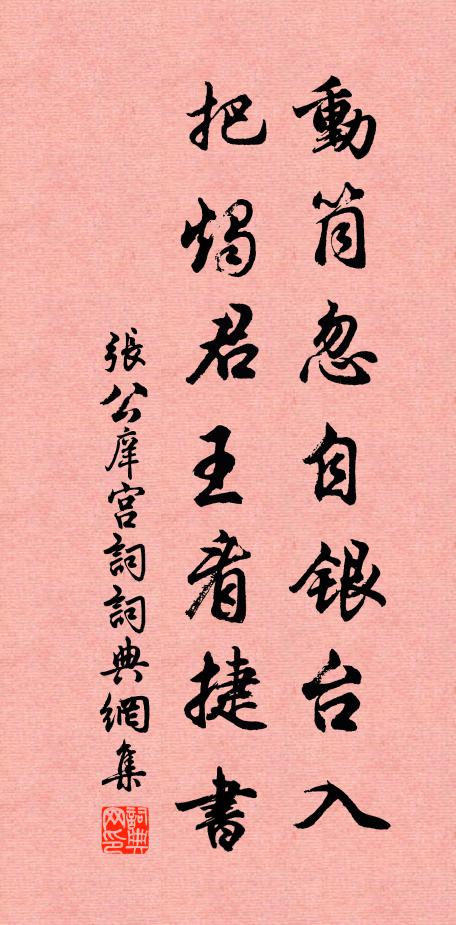 動筒忽自銀台入
把燭君王看捷書
張公庠宮詞詞典網集
詞典
网印